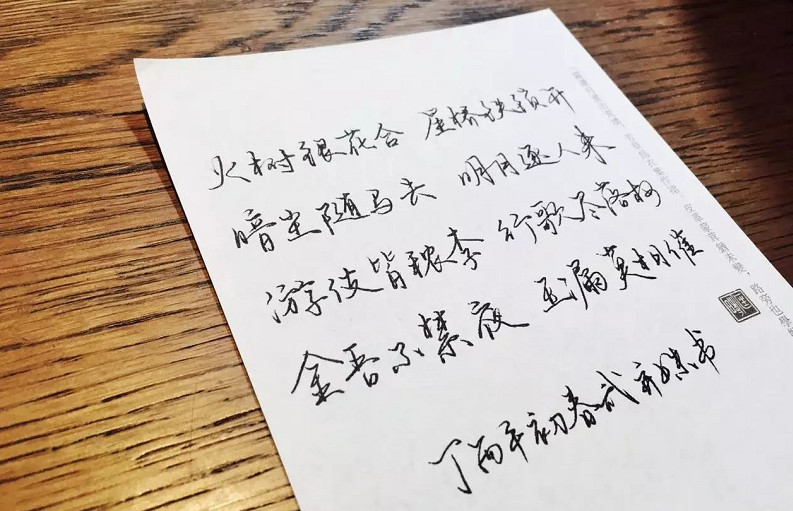 火树银花合 星桥铁锁开
暗尘随马去 明月逐人来
游伎皆秾李 行歌尽落梅
金吾不禁夜 玉漏莫相催
丁酉年初春试书
路旁也學